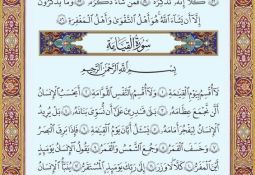 ۞ كَلَّا إِنَّهُ تَذْكِرَةٌ ۞ فَمَن شَاءَ ذَكَرَهُ ۞ وَمَا يَذْكُرُونَ
إِلَّا أَن يَشَاءَ اللَّهُ هُوَ أَهْلُ التَّقْوَىٰ وَأَهْلُ الْمَغْفِرَةِ ۞
سُورَةُ الْقِيَامَةِ
بِسْمِ اللَّهِ الرَّحْمَٰنِ الرَّحِيمِ
لَا أُقْسِمُ بِيَوْمِ الْقِيَامَةِ ۞ وَلَا أُقْسِمُ بِالنَّفْسِ اللَّوَّامَةِ ۞ أَيَحْسَبُ الْإِنسَانُ
أَلَّن نَّجْمَعَ عِظَامَهُ ۞ بَلَىٰ قَادِرِينَ عَلَىٰ أَن نُّسَوِّيَ بَنَانَهُ ۞ بَلْ يُرِيدُ
الْإِنسَانُ لِيَفْجُرَ أَمَامَهُ ۞ يَسْأَلُ أَيَّانَ يَوْمُ الْقِيَامَةِ ۞ فَإِذَا بَرِقَ الْبَصَرُ
۞ وَخَسَفَ الْقَمَرُ ۞ وَجُمِعَ الشَّمْسُ وَالْقَمَرُ ۞ يَقُولُ الْإِنسَانُ يَوْمَئِذٍ
أَيْنَ الْمَفَرُّ ۞ كَلَّا لَا وَزَرَ ۞ إِلَىٰ رَبِّكَ يَوْمَئِذٍ الْمُسْتَقَرُّ ۞ يُنَبَّأُ الْإِنسَانُ